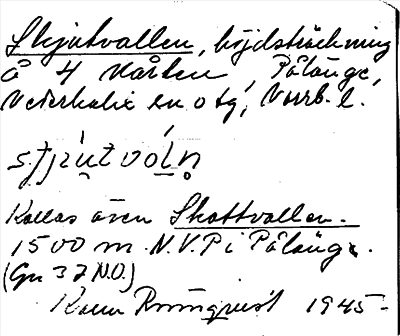 Skjutvallen, höjdsträckning
å 4 Kåsten, Pålänge,
Nederkalix sn o tg, Norrb. l.
Kallas även Skottvallen.
1500 m N.V. P i Pålänge.
(Gn 37 N.O.)
Rönnqvist 1945-